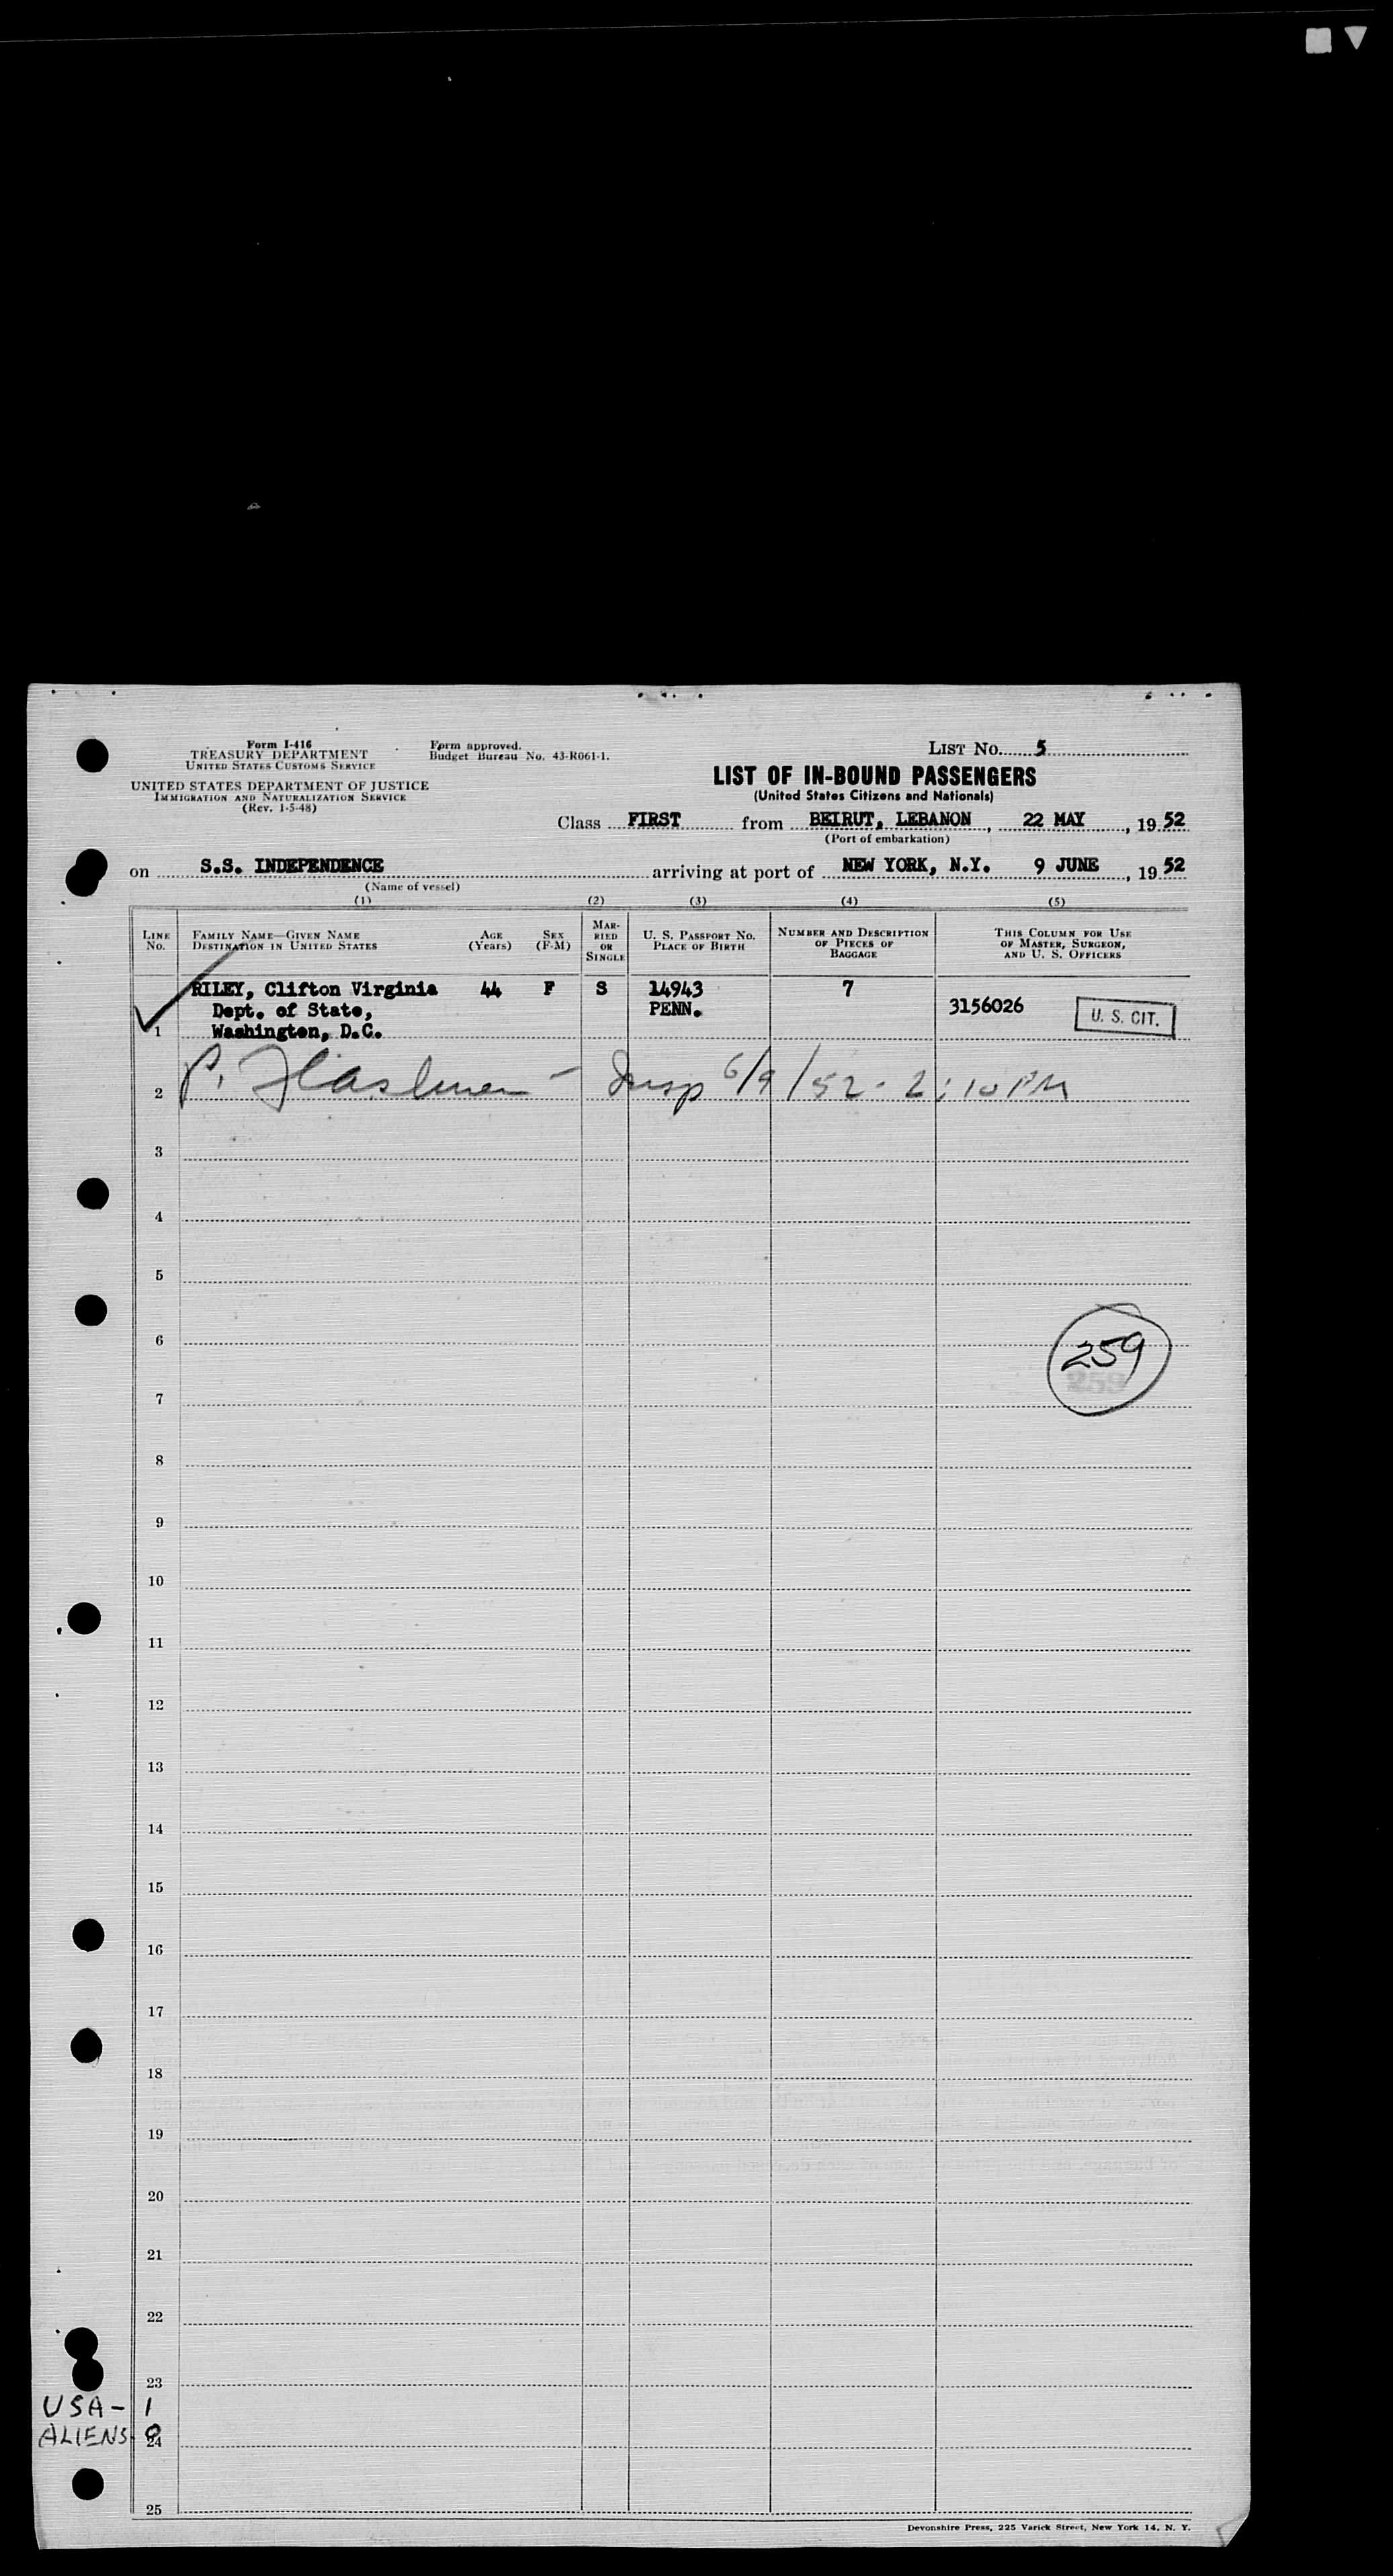 Form I-416
TREASURY DEPARTMENT
UNITED STATES CUSTOMS SERVICE
UNITED STATES DEPARTMENT OF JUSTICE
IMMIGRATION AND NATURALIZATION SERVICE
(Rev. 1-5-48)
Form approved.
Budget Bureau No. 43-R061-1.
LIST No. 5
LIST OF IN-BOUND PASSENGERS
(United States Citizens and Nationals)
Class FIRST from BEIRUT, LEBANON, 22 MAY, 19 52
(Port of embarkation)
on S.S. INDEPENDENCE arriving at port of NEW YORK, N.Y. 9 JUNE, 19 52
(Name of vessel)
(1) (2) (3) (4) (5)
LINE No.
FAMILY NAME—GIVEN NAME
DESTINATION IN UNITED STATES
AGE (Years)
SEX (F-M)
MARRIED OR SINGLE
U. S. PASSPORT No.
PLACE OF BIRTH
NUMBER AND DESCRIPTION OF PIECES OF BAGGAGE
THIS COLUMN FOR USE OF MASTER, SURGEON, AND U. S. OFFICERS
RILEY, Clifton Virginia 44 F S 14943 7
Dept. of State, PENN. 3156026 U. S. CIT.
1 Washington, D.C.
2 P. Insp 6/9/52 - 2:10 PM
3
4
5
6
259
7
8
9
10
11
12
13
14
15
16
17
18
19
20
21
22
23
USA - 1
ALIENS 0
24
25
Devonshire Press, 225 Varick Street, New York 14, N. Y.